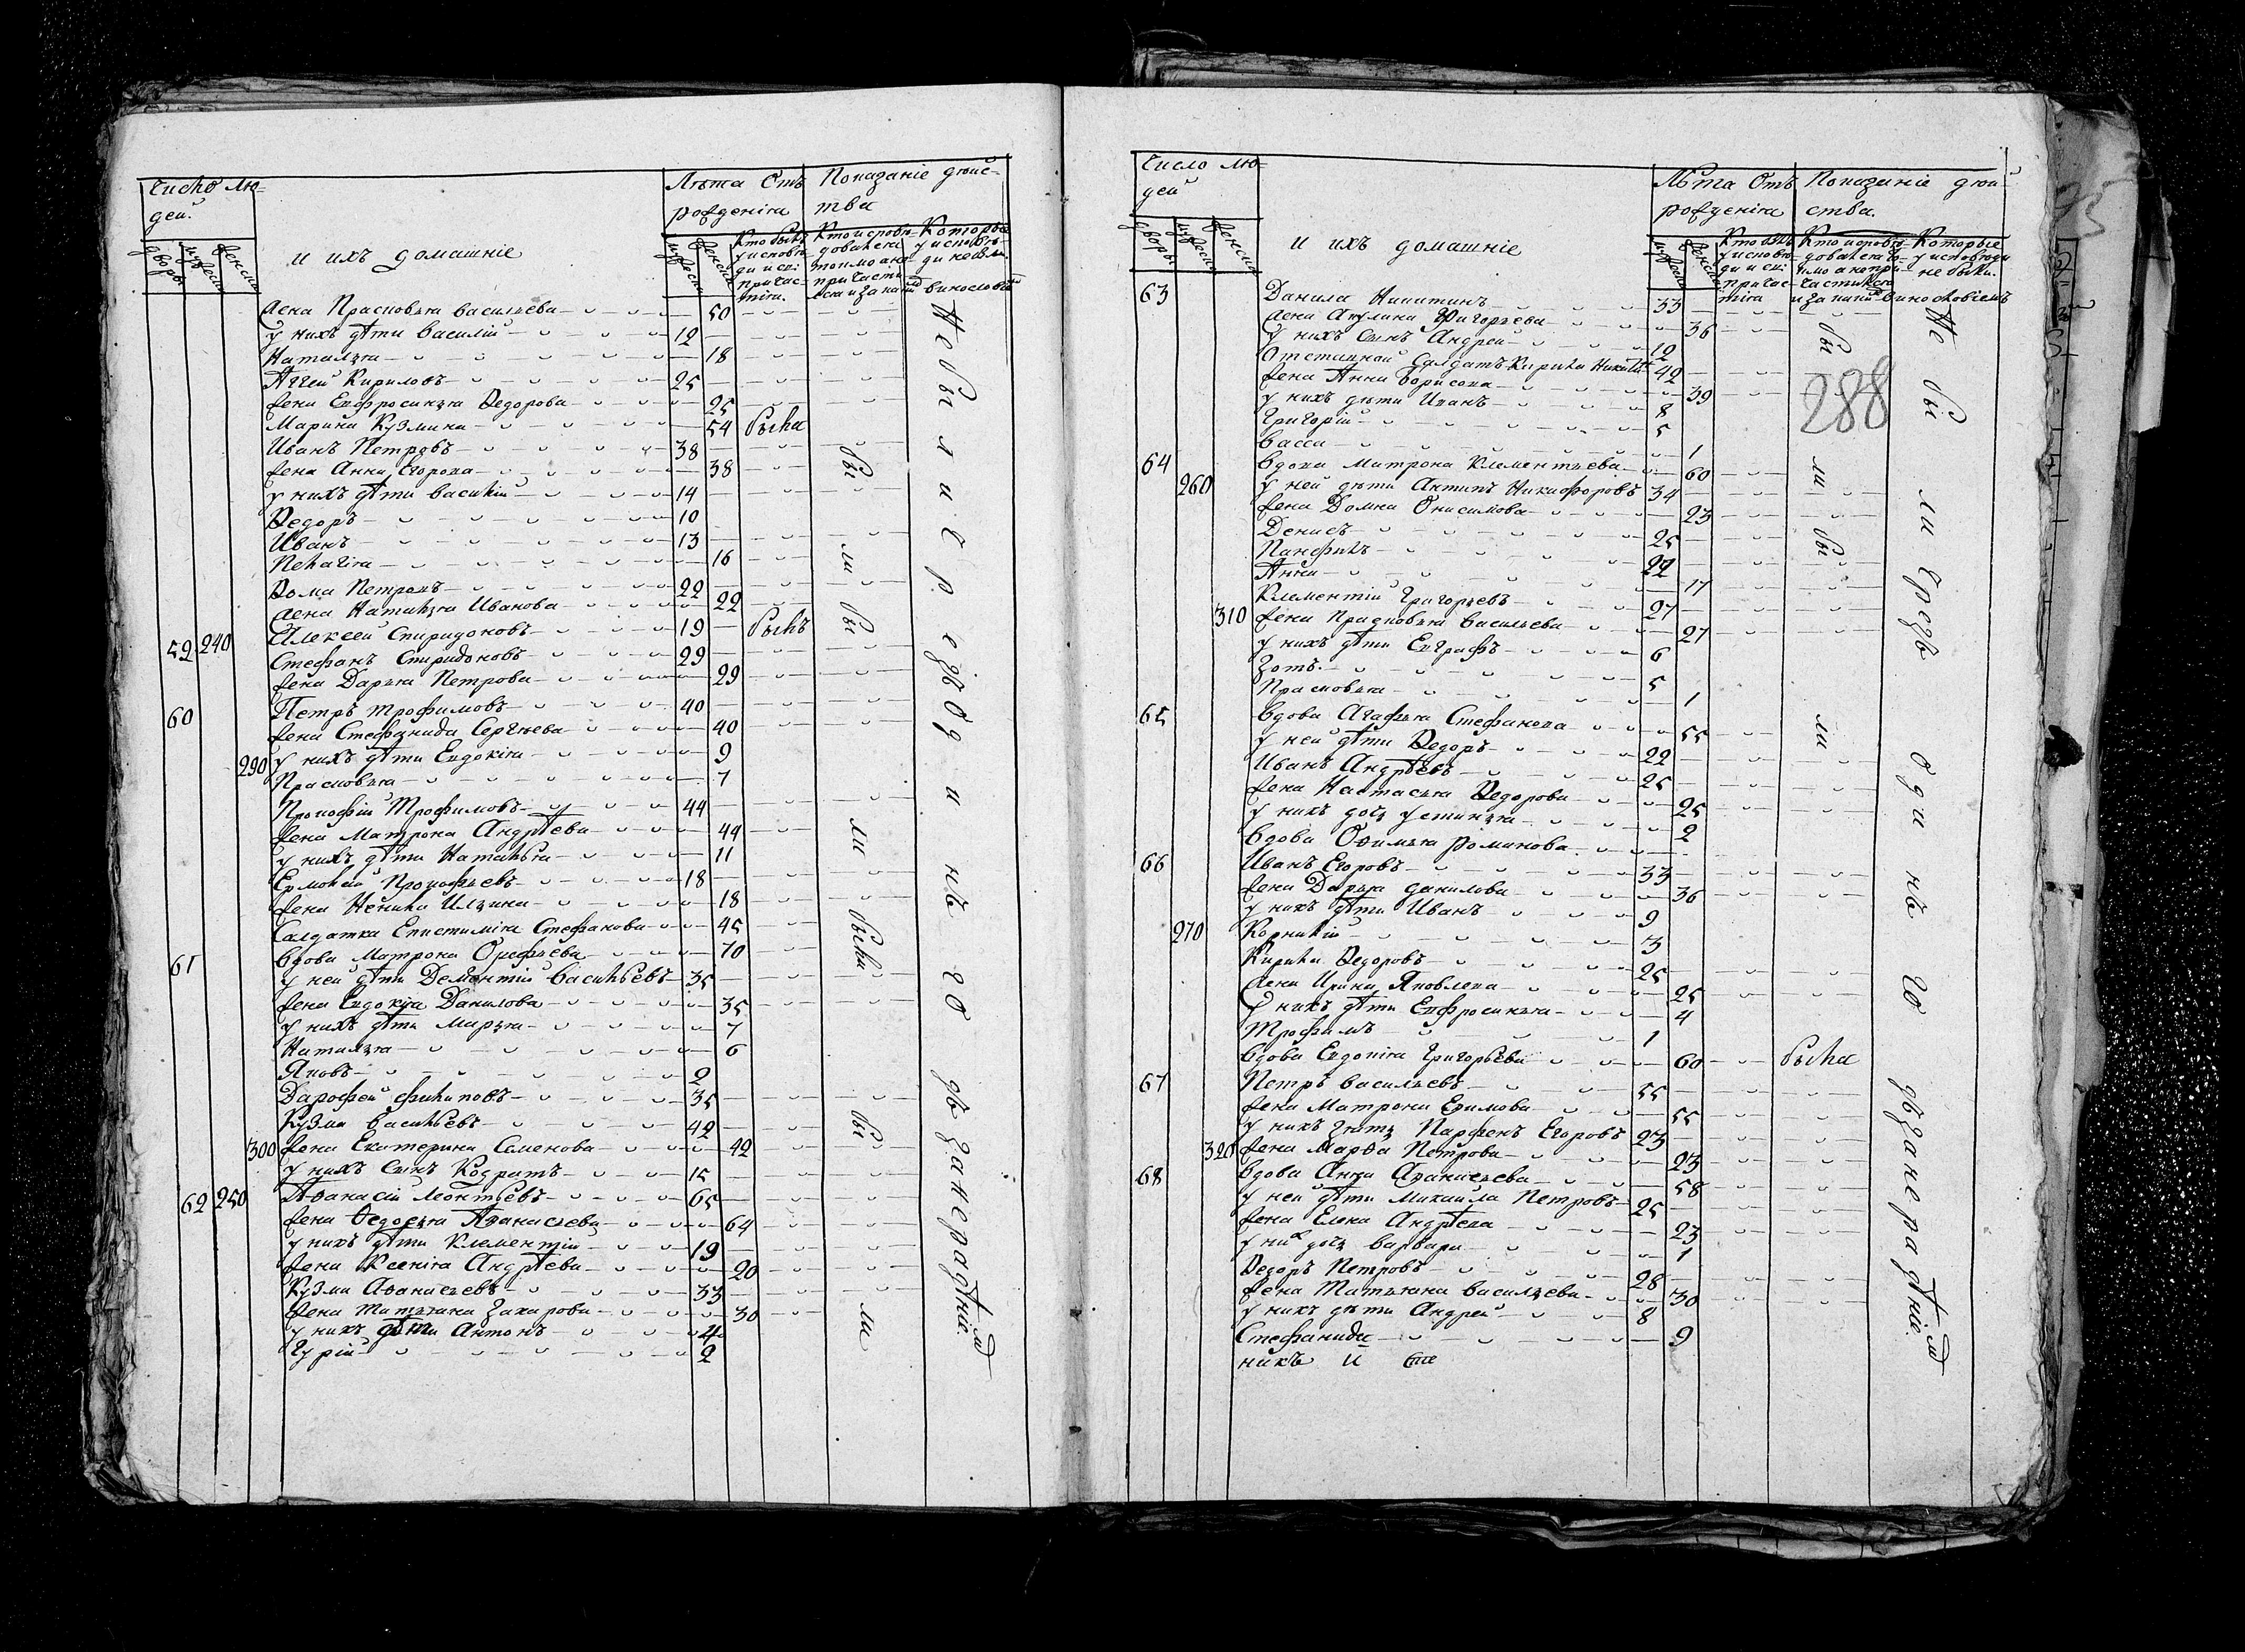 Число лю=
дей.
дворы
мужеска
женска
и ихъ домашніе
Лѣта Отъ
рожденія
Показаніе дѣйс-
тва
Жена Прасковья Васильева 50
у нихъ дѣти Василій 12
Наталья 18
Аггей Кириловъ 25
жена Евфросинья Ѳедорова 25
Марина Кузмина 54 была
Иванъ Петровъ 38
жена Анна Егорова 38
у нихъ дѣти Василій 14
Ѳедоръ 10
Иванъ 13
Пелагія 16
Ѳома Петровъ 22
жена Наталья Иванова 22
Алексей Спиридоновъ 19 былъ
59 240 Стефанъ Спиридоновъ 29
жена Дарья Петрова 29
60 Петръ Трофимовъ 40
жена Стефанида Сергѣева 40
290 у нихъ дѣти Евдокія 9
Прасковья 7
Прокофій Трофимовъ 44
жена Матрона Андрѣева 44
у нихъ дѣти Наталья 11
Ермолай Прокофьевъ 18
жена Ненила Ильина 18
Салдатка Епистимія Стефанова 45
61 вдова Матрона Орефьева 70
у ней дѣти Дементій Васильевъ 35
жена Евдокія Данилова 35
у нихъ дѣти Марья 7
Наталья 6
Яковъ 2
Дарофей Филиповъ 35
Кузма Васильевъ 42
300 жена Екатерина Семенова 42
у нихъ сынъ Кодратъ 15
62 250 Аѳанасій Леонтьевъ 65
жена Ѳедосья Аѳанасьева 64
у нихъ дѣти Климентій 19
жена Ксенія Андрѣева 20
Кузма Аѳанасьевъ 33
жена Татьяна Захарова 30
у нихъ дѣти Антонъ 4
Гурій 2
бы ли бы ли были бы ли
Не были чрезъ одинъ годъ за нерадѣніемъ
Число лю=
дей
дворы
мужеска
женска
и ихъ домашніе
Лѣта Отъ
рожденія
Показаніе дѣй-
ства.
63 Данила Никитинъ 33
жена Акулина Григорьева 36
у нихъ сынъ Андрей 12
Отставной Салдатъ Кирила Никитинъ 42
жена Анна Борисова 39
у нихъ дѣти Иванъ 8
Григорій 5
Васса 1
64 вдова Матрона Клементьева 60
260 у ней дѣти Антипъ Никифоровъ 34
жена Домна Онисимова 23
Денисъ 25
Панфилъ 22
Анна 17
Клементій Григорьевъ 27
310 жена Прасковья Васильева 27
у нихъ дѣти Евграфъ 6
Зотъ 5
Прасковья 1
65 вдова Агафья Стефанова 55
у ней дѣти Ѳедоръ 22
Иванъ Андрѣевъ 25
жена Настасья Ѳедорова 25
у нихъ дочь Устинья 2
вдова Офимья Романова
66 Иванъ Егоровъ 33
жена Дарья Данилова 36
у нихъ дѣти Иванъ 9
270 Корнилій 3
Кирила Ѳедоровъ 25
жена Ирина Яковлева 25
у нихъ дѣти Евфросинья 4
Трофимъ 1
вдова Евдокія Григорьева 60 была
67 Петръ Васильевъ 55
жена Матрона Ефимова 55
у нихъ зять Парфенъ Егоровъ 23
320 жена Марѳа Петрова 23
68 вдова Анна Аѳанасьева 58
у ней дѣти Михаила Петровъ 25
жена Елена Андрѣева 23
у них дочь Варвара 1
Ѳедоръ Петровъ 28
жена Татьяна Васильева 30
у нихъ дѣти Андрей 8
Стефанида 9
бы ли бы ли
288
Не были чрезъ одинъ годъ за нерадѣніемъ